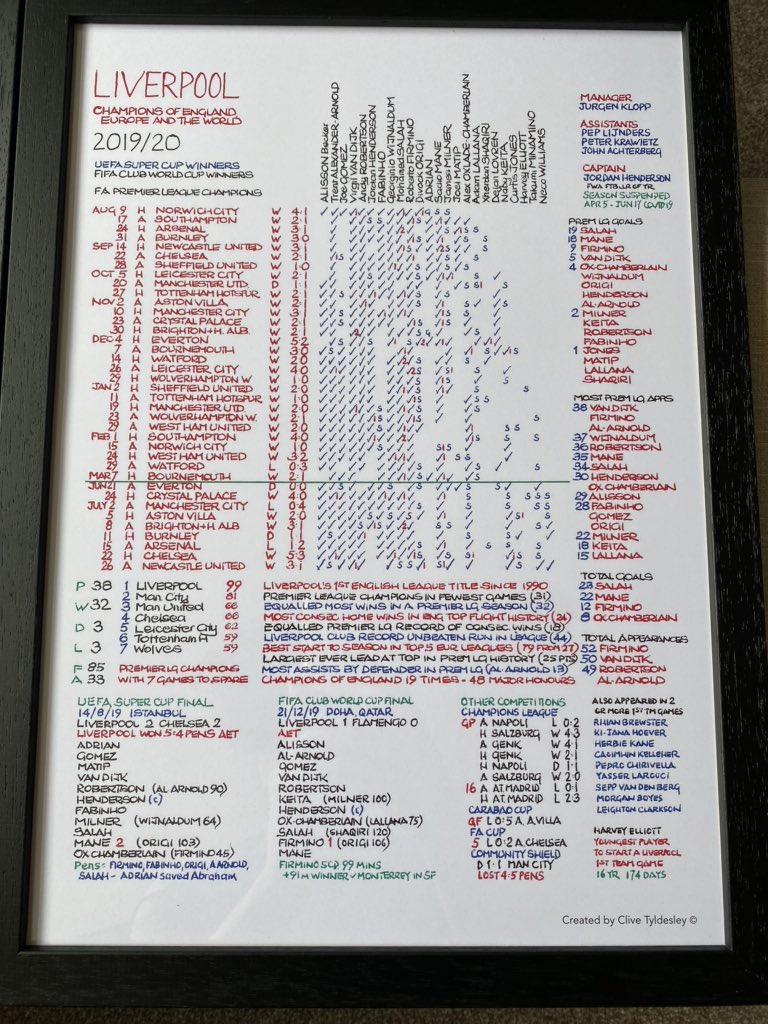 LIVERPOOL
CHAMPIONS OF ENGLAND
EUROPE AND THE WORLD
2019/20
UEFA SUPER CUP WINNERS
FIFA CLUB WORLD CUP WINNERS
FA PREMIER LEAGUE CHAMPIONS
ALISSON Becker
Trent ALEXANDER-ARNOLD
Joe GOMEZ
Virgil VAN DIJK
Andy ROBERTSON
Jordan HENDERSON
FABINHO
Georginio WIJNALDUM
Mohamed SALAH
Roberto FIRMINO
Divock ORIGI
ADRIAN
Sadio MANE
James MILNER
Joel MATIP
Alex OXLADE-CHAMBERLAIN
Adam LALLANA
Xherdan SHAQIRI
Dejan LOVREN
Naby KEITA
Curtis JONES
Harvey ELLIOTT
Takumi MINAMINO
Neco WILLIAMS
AUG 9 H NORWICH CITY W 4:1
17 A SOUTHAMPTON W 2:1
24 H ARSENAL W 3:1
31 A BURNLEY W 3:0
SEP 14 H NEWCASTLE UNITED W 3:1
22 A CHELSEA W 2:1
28 A SHEFFIELD UNITED W 1:0
OCT 5 H LEICESTER CITY W 2:1
20 A MANCHESTER UTD D 1:1
27 H TOTTENHAM HOTSPUR W 2:1
NOV 2 A ASTON VILLA W 2:1
10 H MANCHESTER CITY W 3:1
23 A CRYSTAL PALACE W 2:1
30 H BRIGHTON+H. ALB. W 2:1
DEC 4 H EVERTON W 5:2
7 A BOURNEMOUTH W 3:0
14 H WATFORD W 2:0
26 A LEICESTER CITY W 4:0
29 H WOLVERHAMPTON W. W 1:0
JAN 2 H SHEFFIELD UNITED W 2:0
11 A TOTTENHAM HOTSPUR W 1:0
19 H MANCHESTER UTD. W 2:0
23 A WOLVERHAMPTON W. W 2:1
29 A WEST HAM UNITED W 2:0
FEB 1 H SOUTHAMPTON W 4:0
15 A NORWICH CITY W 1:0
24 H WEST HAM UNITED W 3:2
29 A WATFORD L 0:3
MAR 7 H BOURNEMOUTH W 2:1
JUN 21 A EVERTON D 0:0
24 H CRYSTAL PALACE W 4:0
JULY 2 A MANCHESTER CITY L 0:4
5 H ASTON VILLA W 2:0
8 A BRIGHTON+H ALB W 3:1
11 H BURNLEY D 1:1
15 A ARSENAL L 1:2
22 H CHELSEA W 5:3
26 A NEWCASTLE UNITED W 3:1
MANAGER
JURGEN KLOPP
ASSISTANTS
PEP LIJNDERS
PETER KRAWIETZ
JOHN ACHTERBERG
CAPTAIN
JORDAN HENDERSON
FWA FTBLLR OF YR.
SEASON SUSPENDED
APR 5 - JUN 17 COVID 19
PREM LG GOALS
19 SALAH
18 MANE
9 FIRMINO
5 VAN DIJK
4 OX-CHAMBERLAIN
WIJNALDUM
ORIGI
HENDERSON
AL-ARNOLD
2 MILNER
KEITA
ROBERTSON
FABINHO
1 JONES
MATIP
LALLANA
SHAQIRI
MOST PREM LG APPS
38 VAN DIJK
FIRMINO
AL-ARNOLD
37 WIJNALDUM
36 ROBERTSON
35 MANE
34 SALAH
30 HENDERSON
OX CHAMBERLAIN
29 ALISSON
28 FABINHO
GOMEZ
ORIGI
22 MILNER
18 KEITA
15 LALLANA
TOTAL GOALS
23 SALAH
22 MANE
12 FIRMINO
8 OX CHAMBERLAIN
TOTAL APPEARANCES
52 FIRMINO
50 VAN DIJK
49 ROBERTSON
AL-ARNOLD
P 38
W 32
D 3
L 3
F 85
A 33
1 LIVERPOOL 99
2 Man City 81
3 Man United 66
4 Chelsea 66
5 Leicester City 62
6 Tottenham H 59
7 Wolves 59
PREMIER LG CHAMPIONS
WITH 7 GAMES TO SPARE
LIVERPOOL'S 1ST ENGLISH LEAGUE TITLE SINCE 1990
PREMIER LEAGUE CHAMPIONS IN FEWEST GAMES (31)
EQUALLED MOST WINS IN A PREM LG SEASON (32)
MOST CONSEC HOME WINS IN ENG TOP FLIGHT HISTORY (24)
EQUALLED PREM LG RECORD OF CONSEC WINS (18)
LIVERPOOL CLUB RECORD UNBEATEN RUN IN LEAGUE (44)
BEST START TO SEASON IN TOP 5 EUR LEAGUES (79 FROM 27)
LARGEST EVER LEAD AT TOP IN PREM LG HISTORY (25 PTS)
MOST ASSISTS BY DEFENDER IN PREM LG (AL ARNOLD 13)
CHAMPIONS OF ENGLAND 19 TIMES - 48 MAJOR HONOURS
UEFA SUPER CUP FINAL
14/8/19 ISTANBUL
LIVERPOOL 2 CHELSEA 2
LIVERPOOL WON 5:4 PENS AET
ADRIAN
GOMEZ
MATIP
VAN DIJK
ROBERTSON (AL ARNOLD 90)
HENDERSON (c)
FABINHO
MILNER (WIJNALDUM 64)
SALAH
MANE 2 (ORIGI 103)
OX CHAMBERLAIN (FIRMINO 45)
Pens - FIRMINO, FABINHO, ORIGI, A ARNOLD,
SALAH - ADRIAN saved Abraham
FIFA CLUB WORLD CUP FINAL
21/12/19 DOHA, QATAR
LIVERPOOL 1 FLAMENGO 0
AET
ALISSON
AL-ARNOLD
GOMEZ
VAN DIJK
ROBERTSON
KEITA (MILNER 100)
HENDERSON (c)
OX-CHAMBERLAIN (LALLANA 75)
SALAH (SHAQIRI 120)
FIRMINO 1 (ORIGI 106)
MANE
FIRMINO SCD 99 MINS
+91M WINNER v MONTERREY IN SF
OTHER COMPETITIONS
CHAMPIONS LEAGUE
GP A NAPOLI L 0:2
H SALZBURG W 4:3
A GENK W 4:1
H GENK W 2:1
H NAPOLI D 1:1
A SALZBURG W 2:0
16 A AT. MADRID L 0:1
H AT. MADRID L 2:3
CARABAO CUP
QF L 0:5 A. A.VILLA
FA CUP
5 L 0:2 A. CHELSEA
COMMUNITY SHIELD
D 1:1 MAN CITY
LOST 4:5 PENS
ALSO APPEARED IN 2
OR MORE 1ST TM GAMES
RHIAN BREWSTER
KI-JANA HOEVER
HERBIE KANE
CAOIMHIN KELLEHER
PEDRO CHIRIVELLA
YASSER LAROUCI
SEPP VAN DEN BERG
MORGAN BOYES
LEIGHTON CLARKSON
HARVEY ELLIOTT
YOUNGEST PLAYER
TO START A LIVERPOOL
1ST TEAM GAME
16 YR 174 DAYS
Created by Clive Tyldesley ©